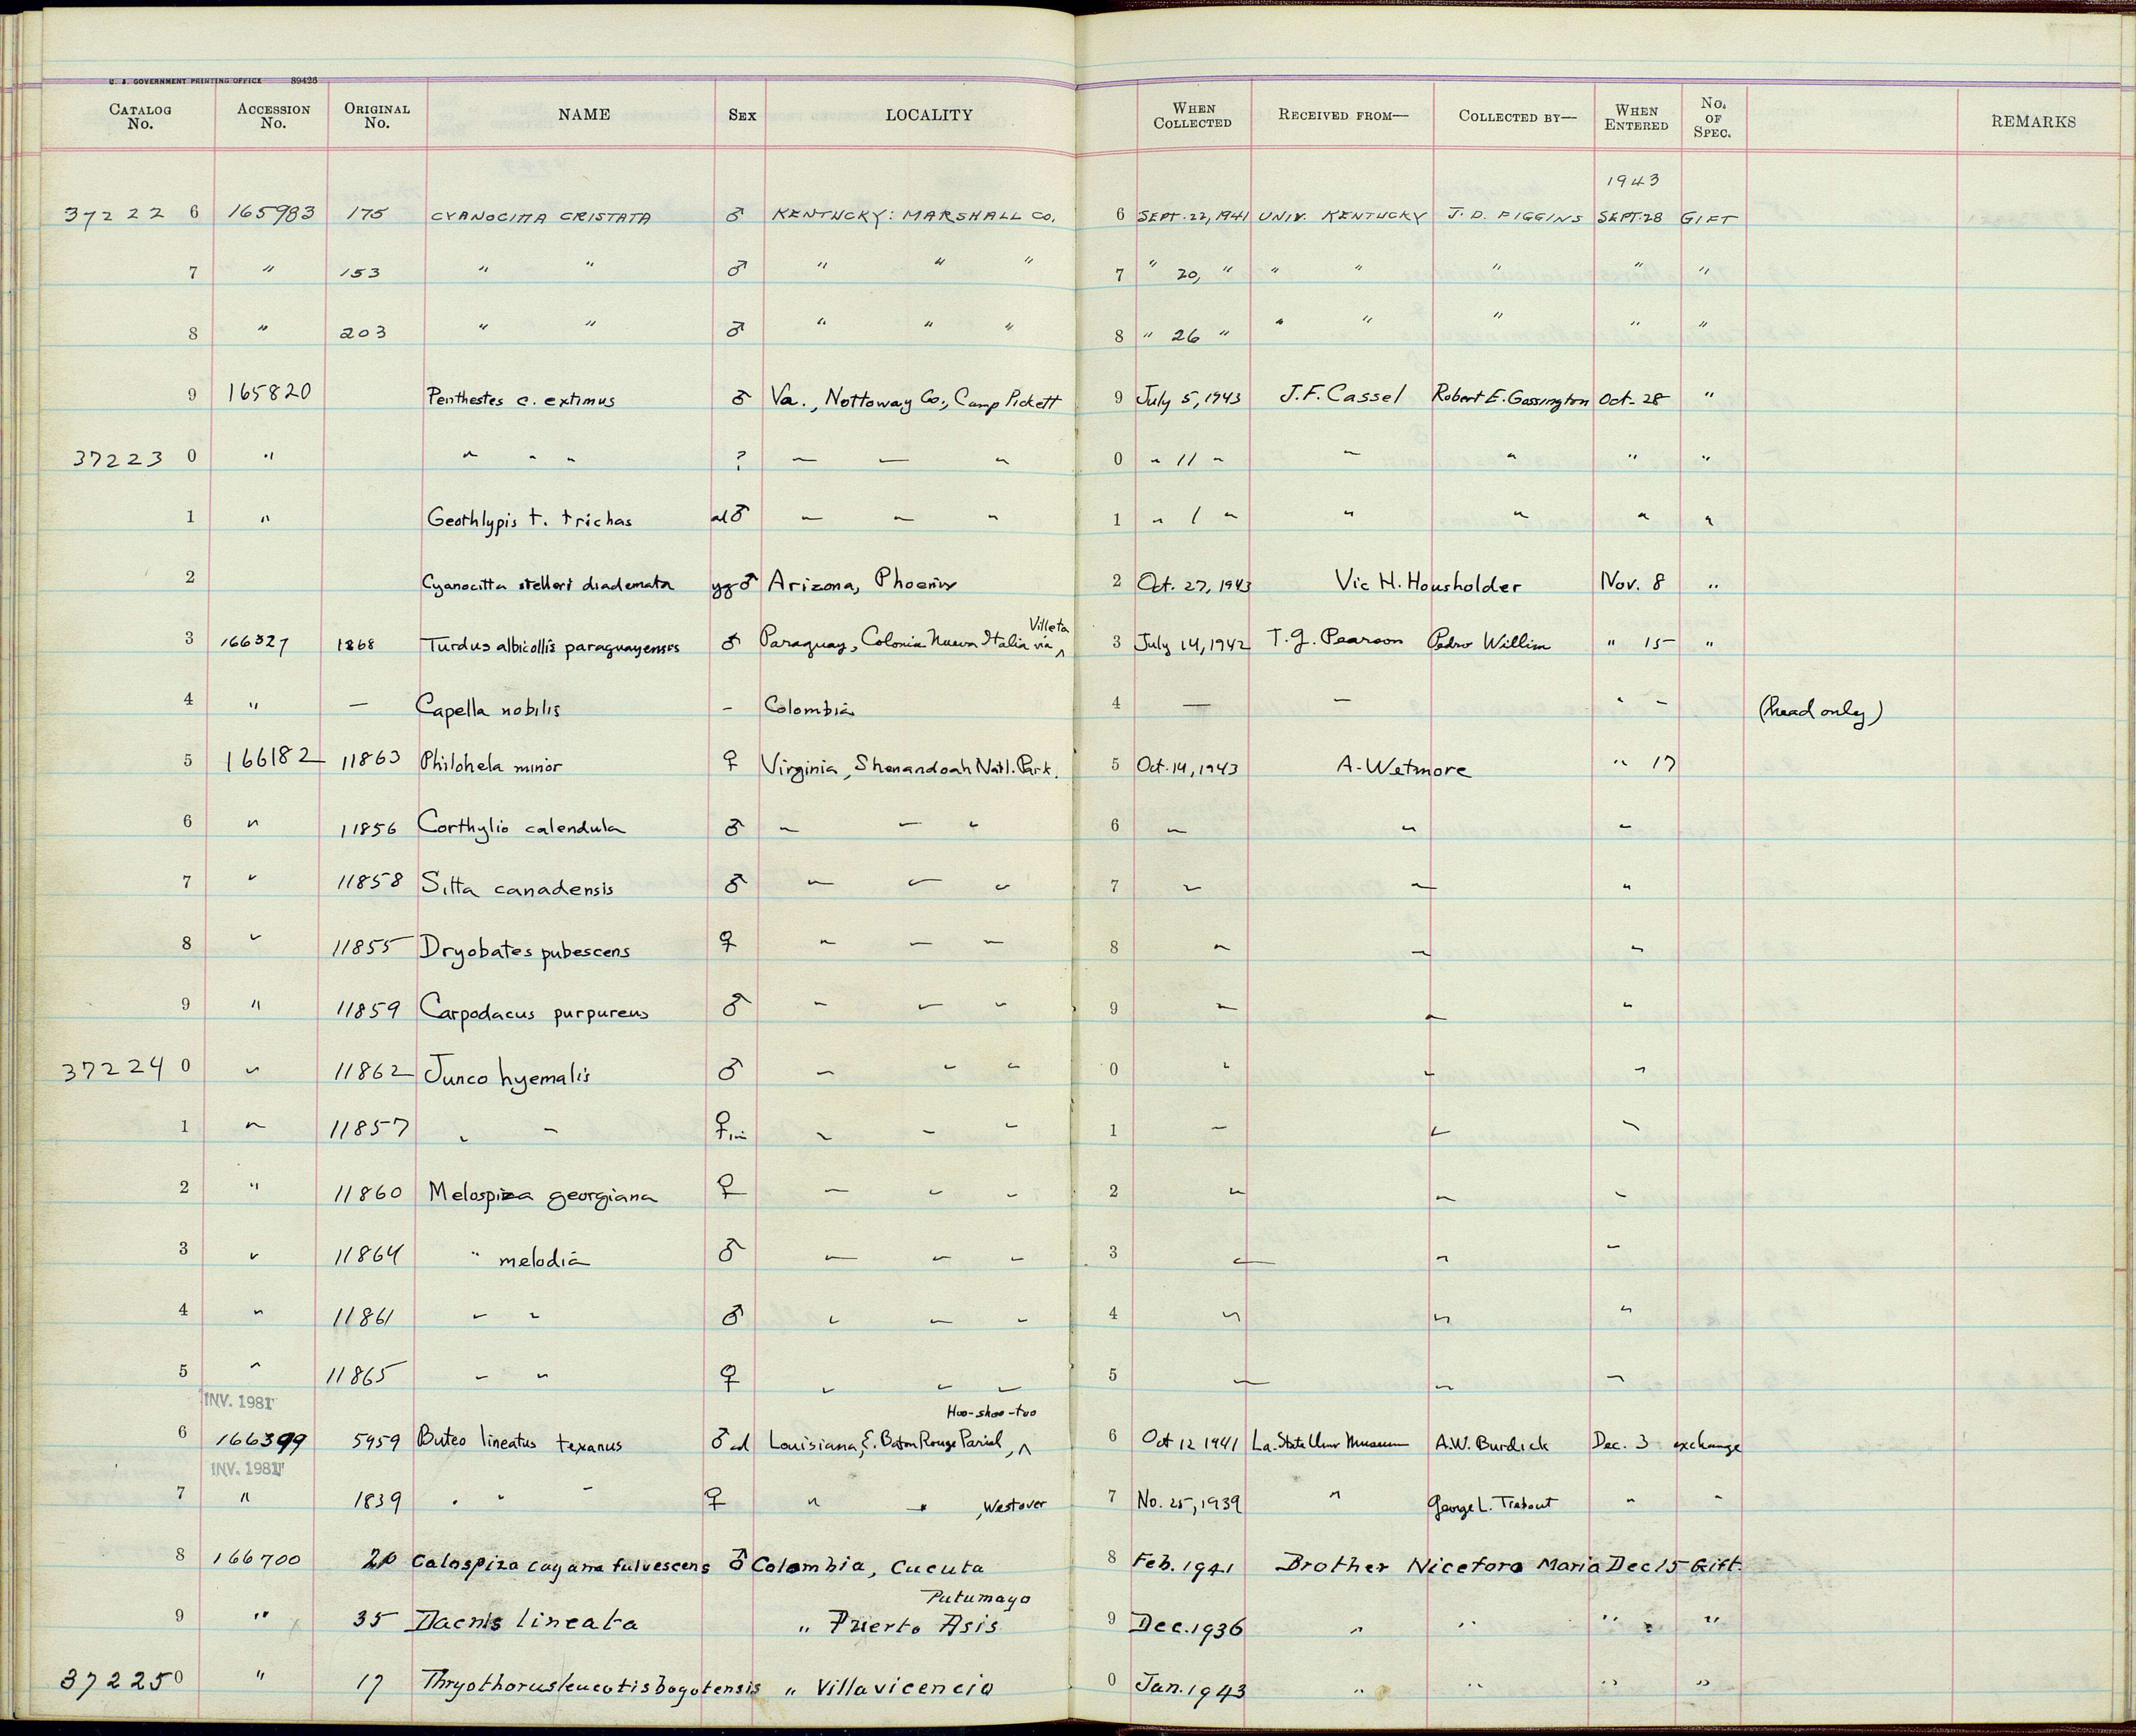 U. S. GOVERNMENT PRINTING OFFICE 89426
CATALOG No. ACCESSION No. ORIGINAL No. NAME SEX LOCALITY WHEN COLLECTED RECEIVED FROM— COLLECTED BY— WHEN ENTERED No. OF SPEC. REMARKS
1943
37222 6 165983 175 CYANOCITTA CRISTATA ♂ KENTUCKY: MARSHALL CO. 6 SEPT. 22, 1941 UNIV. KENTUCKY J. D. FIGGINS SEPT. 28 GIFT
7 " 153 " " ♂ " " " 7 " 20, " " " " " "
8 " 203 " " ♂ " " " 8 " 26 " " " " " "
9 165820 Penthestes c. extimus ♂ Va., Nottoway Co., Camp Pickett 9 July 5, 1943 J. F. Cassel Robert E. Gossington Oct. 28 "
37223 0 " " " " ? " " " 0 " 11 " " " " "
1 " Geothlypis t. trichas ad ♂ " " " 1 " 1 " " " " "
2 Cyanocitta stelleri diademata yg ♂ Arizona, Phoenix 2 Oct. 27, 1943 Vic H. Housholder Nov. 8 "
3 166327 1868 Turdus albicollis paraguayensis ♂ Paraguay, Colonia Nueva Italia via ^ Villeta 3 July 14, 1942 T. G. Pearson Pedro Willim " 15 "
4 " — Capella nobilis – Colombia 4 — — " " (head only)
5 166182 11863 Philohela minor ♀ Virginia, Shenandoah Natl. Park. 5 Oct. 14, 1943 A. Wetmore " 17
6 " 11856 Corthylio calendula ♂ " " " 6 " " "
7 " 11858 Sitta canadensis ♂ " " " 7 " " "
8 " 11855 Dryobates pubescens ♀ " " " 8 " " "
9 " 11859 Carpodacus purpureus ♂ " " " 9 " " "
37224 0 " 11862 Junco hyemalis ♂ " " " 0 " " "
1 " 11857 " " ♀ im " " " 1 " " "
2 " 11860 Melospiza georgiana ♀ " " " 2 " " "
3 " 11864 " melodia ♂ " " " 3 " " "
4 " 11861 " " ♂ " " " 4 " " "
5 " 11865 " " ♀ " " " 5 " " "
INV. 1981
6 166399 5959 Buteo lineatus texanus ♂ ad Louisiana, E. Baton Rouge Parish, ^ Hoo-shoo-too 6 Oct 12 1941 La. State Univ Museum A. W. Burdick Dec. 3 exchange
INV. 1981
7 " 1839 " " " ♀ " " , Westover 7 No. 25, 1939 " George L. " "
8 166700 20 Calospiza cayana fulvescens ♂ Colombia, Cucuta 8 Feb. 1941 Brother Niceforo Maria Dec 15 Gift.
Putumayo
9 " 35 Dacnis lineata " Puerto Asis 9 Dec. 1936 " " " " "
37225 0 " 17 Thryothorus leucotis bogotensis " Villavicencio 0 Jan. 1943 " " " "